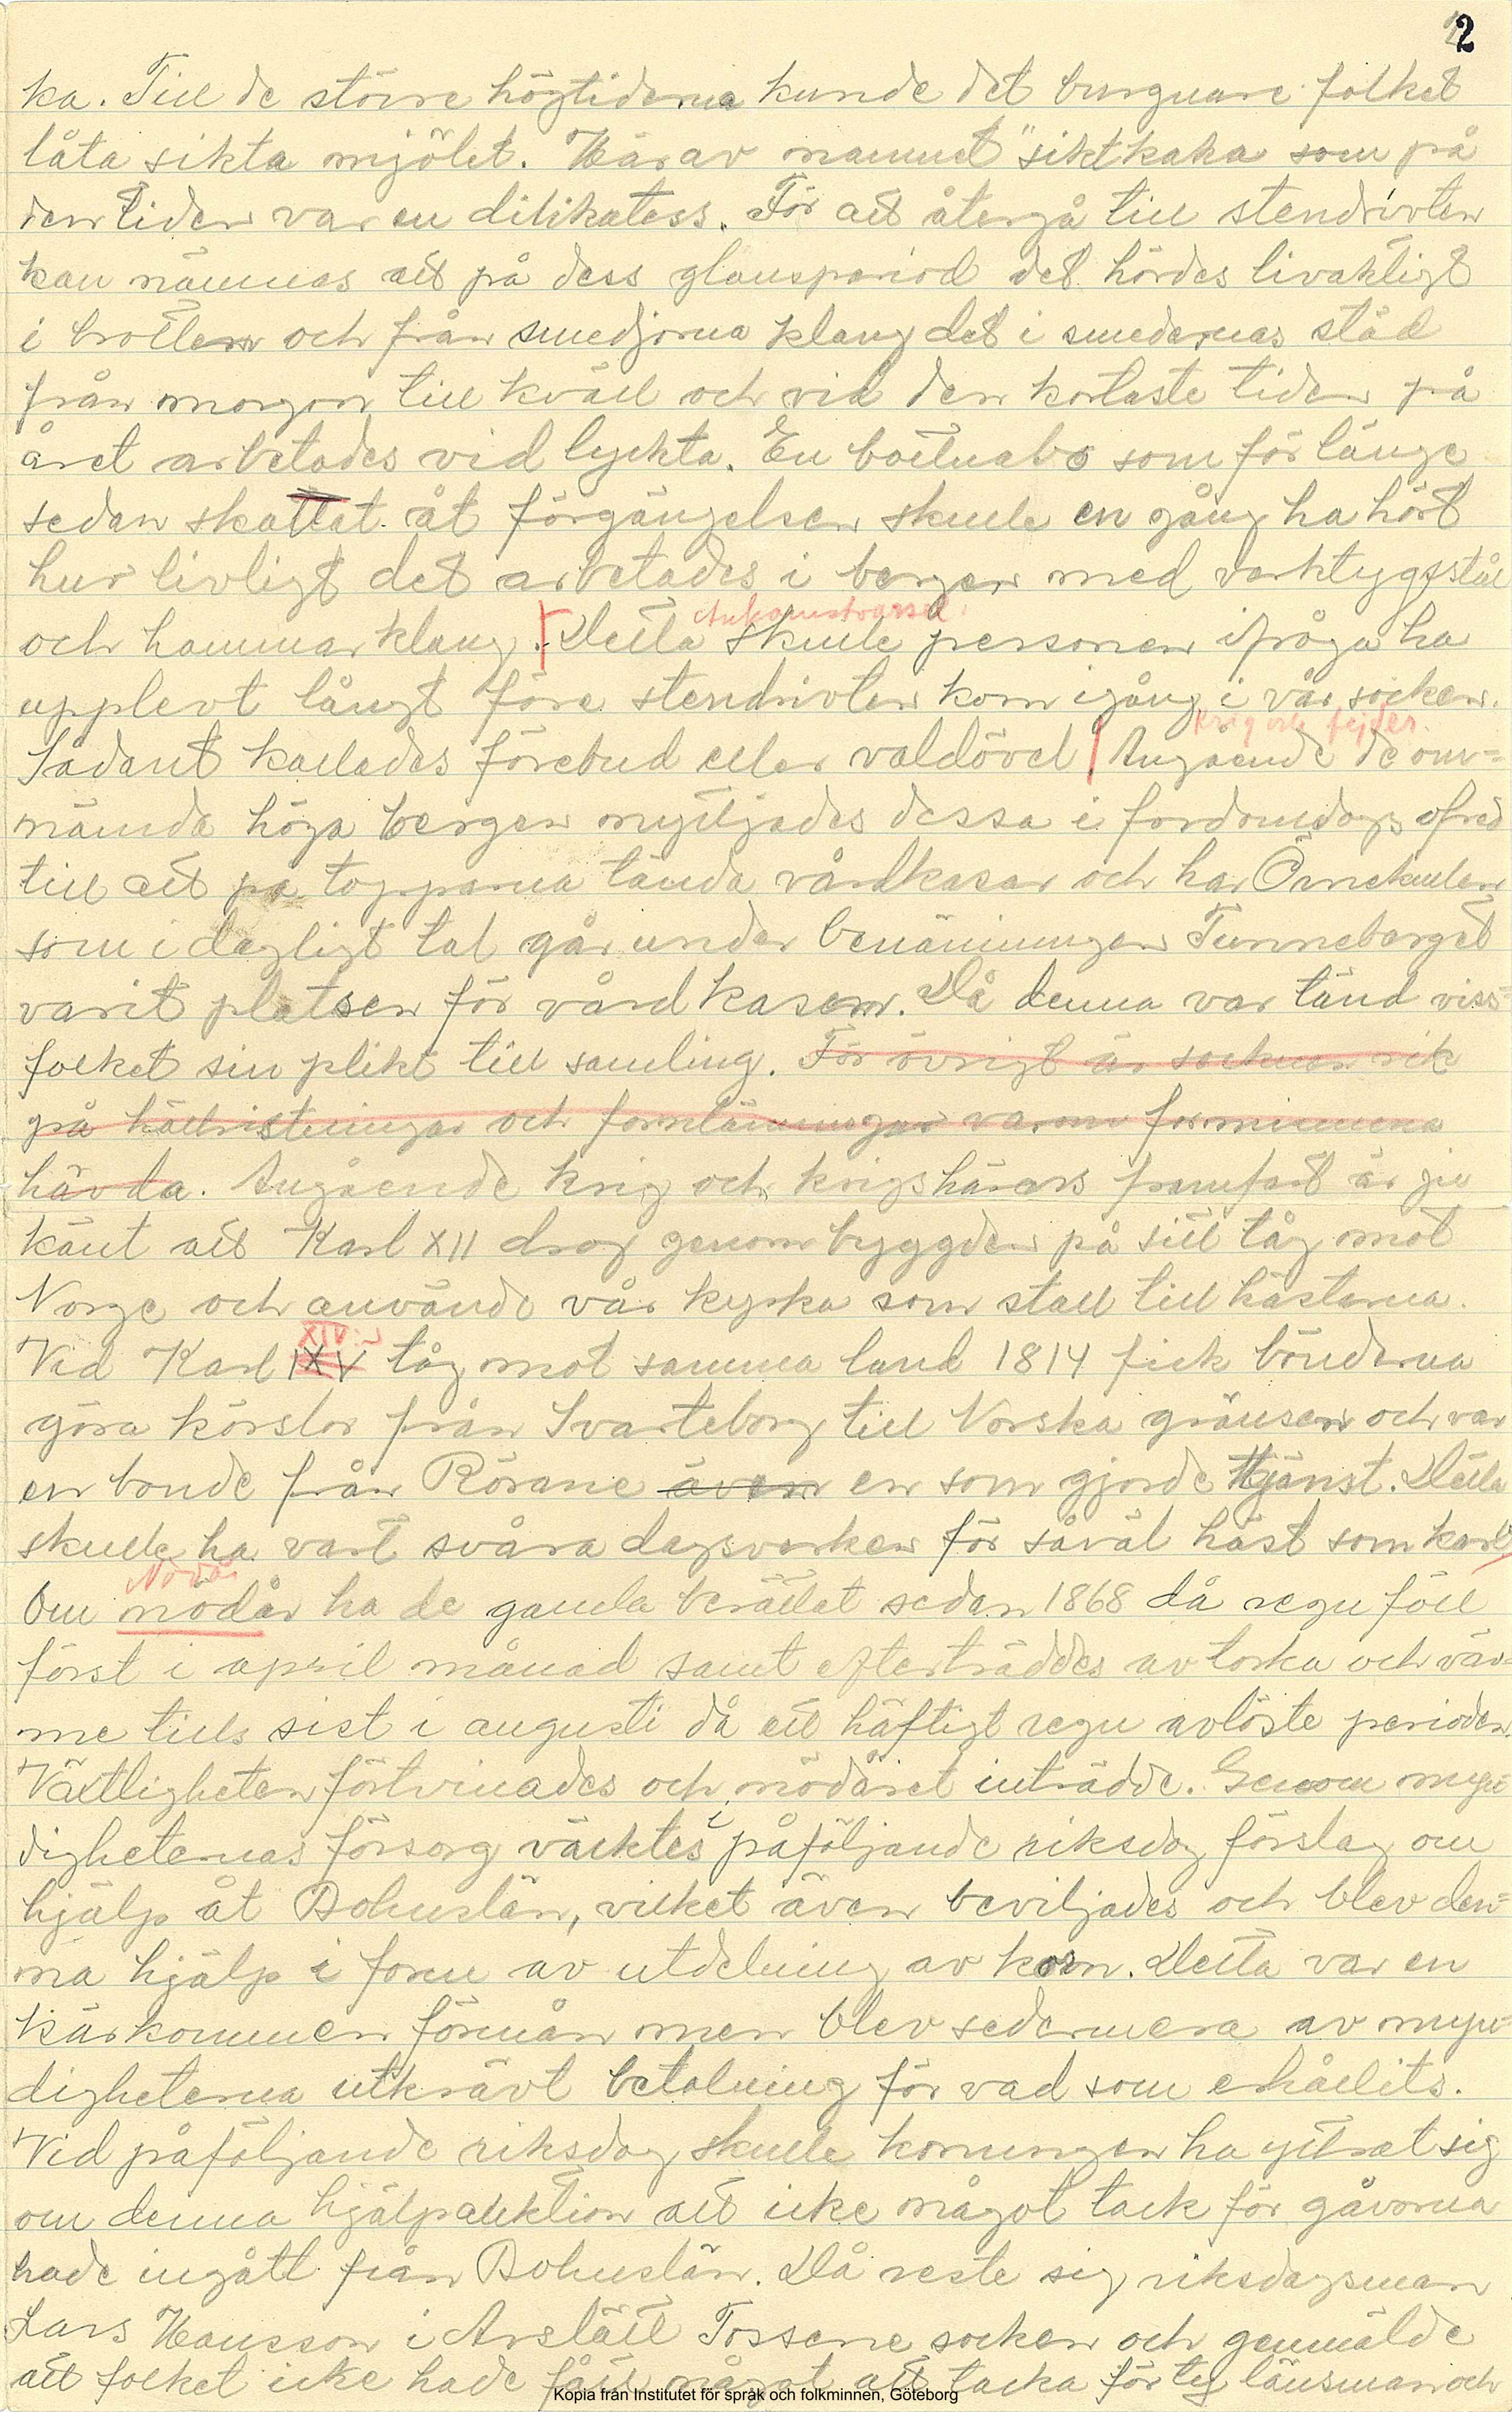 2
ka. Till de större högtiderna kunde det burgnare folket
låta sikta mjölet. Härav namnet "siktkaka som på
den tiden var en dilikatess. För att återgå till stendrivten
kan nämnas att på dess glansperiod det hördes livaktigt
i brotten och från smedjorna klang det i smedernas städ
från morgon till kväll och vid den kortaste tiden på
året arbetades vid lyckta. En bottnabo som för länge
sedan skattat åt förgängelsen skulle en gång ha hört
hur livligt det arbetades i bergen med verktygsstål
och hammarklang. Detta skulle personen ifråga ha
Ankomstvarsel.
upplevt långt före stendrivten kom igång i vår socken.
Krig och fejder.
Sådant kallades förebud eller valdövel. Angående de om-
nämda höga bergen nyttjades dessa i fordomdags ofred
till att på topparna tända vårdkasar och har Örnekulen
som i dagligt tal går under benämningen Tunneberget
varit platsen för vårdkasen. Då denna var tänd viss-
folket sin plikt till samling. För övrigt är socknen rik
på hällristningar och fornlämningar varom fornminnena
hävda. Angående krig och krigshärars framfart är ju
känt att Karl XII drog genom byggden på sitt tåg mot
Norge och använde vår kyrka som stall till hästarna.
XIV:s
Vid Karl XV tåg mot samma land 1814 fick bönderna
göra körslor från Svarteborg till Norska gränsen och var
en bonde från Rörane även en som gjorde tjänst. Detta
skulle ha vart svåra dagsverken för såväl häst som karl
Nödår
Om nödår ha de gamla berättat sedan 1868 då regn föll
först i april månad samt efterträddes av torka och vär-
me tills sist i augusti då ett häftigt regn avlöste perioden.
Växtligheten förtvinades och nödåret inträdde. Genom myn-
digheternas försorg väcktes i påföljande riksdag förslag om
hjälp åt Bohuslän, vilket även beviljades och blev den-
na hjälp i form av utdelning av korn. Detta var en
kärkommen förmån men blev sedermera av myn-
digheterna utkrävt betalning för vad som erhållits.
Vid påföljande riksdag skulle konungen ha yttrat sig
om denna hjälpaktion att icke något tack för gåvorna
hade ingått från Bohuslän. Då reste sig riksdagsman
Lars Hansson i Arslätt Tossene socken och genmälde
att folket icke hade fått något att tacka för ty länsman och
Kopia från Institutet för språk och folkminnen, Göteborg